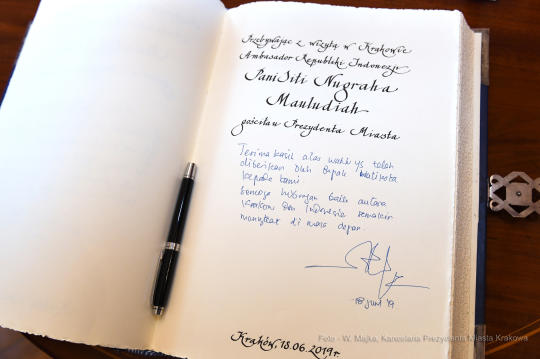 Przebywając z wizytą w Krakowie
Ambasador Republiki Indonezji
Pani Siti Nugraha
Mauludiah
gościem Prezydenta Miasta
Terima kasih atas waktu yg telah
diberikan oleh Bapak Walikota
kepada kami
Semoga hubungan baik antara
Krakow dan Indonesia semakin
meningkat di masa depan.
18 Juni '19
Kraków, 18.06.2019r.
Foto - W. Majka, Kancelaria Prezydenta Miasta Krakowa